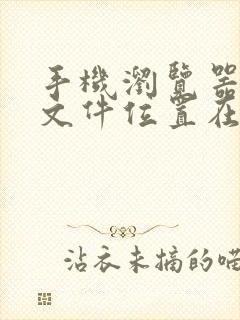 手機瀏覽器
文件位置在
沾衣未摘的喵